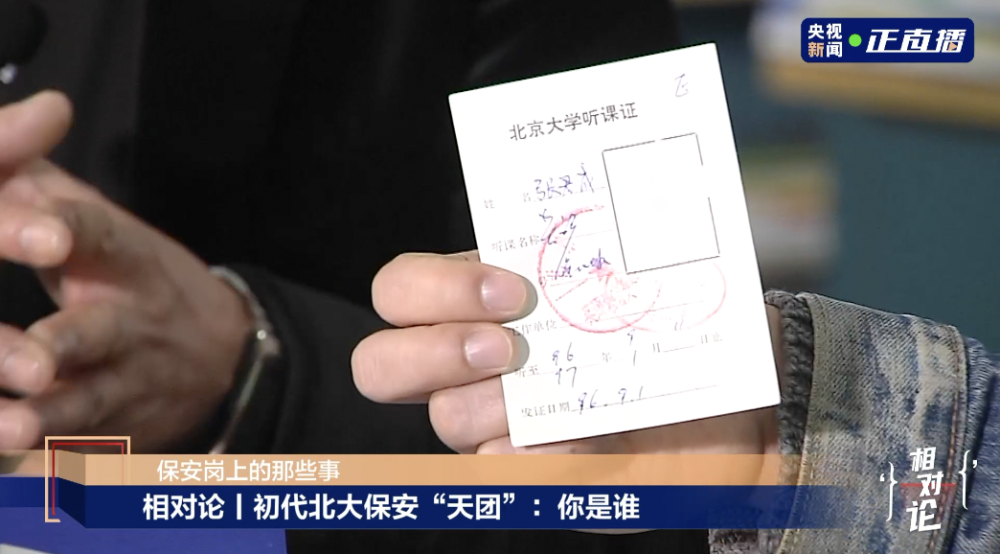 央视
新闻
正直播
北京大学听课证
姓 名
听课名称
工作单位
听至 96 年 9 月 日止
97 1
发证日期 96.9.1
保安岗上的那些事
相对论丨初代北大保安“天团”：你是谁
相
对
论